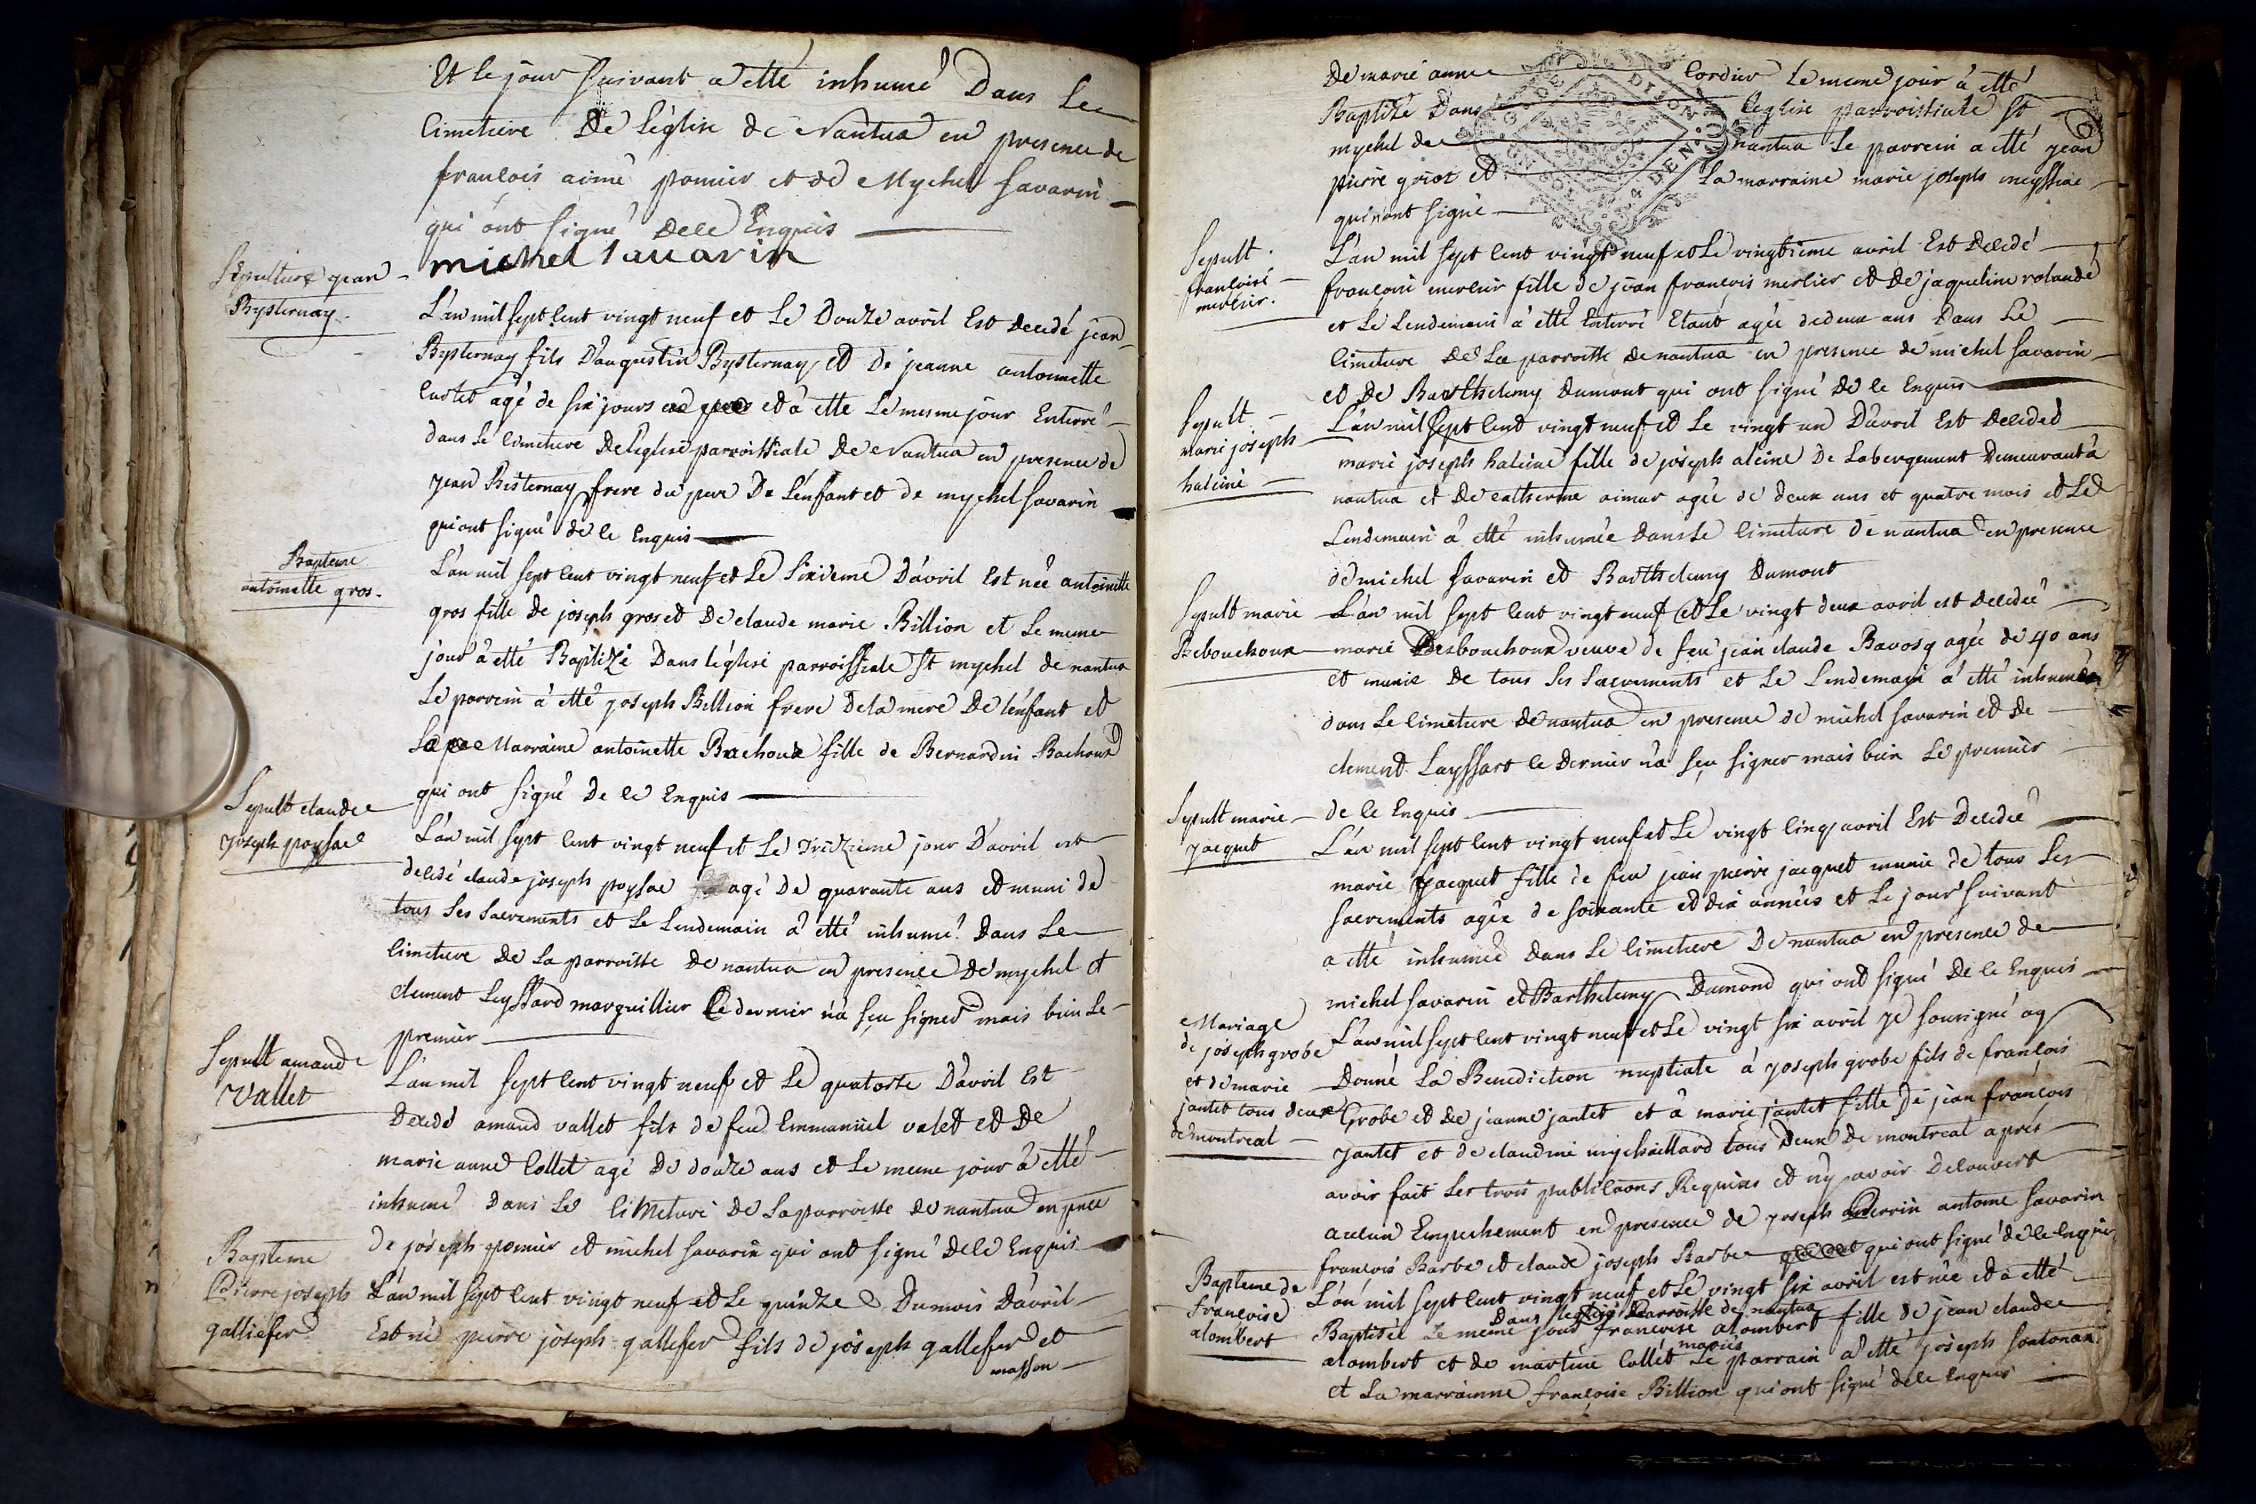 Et le jour suivant a etté inhumé Dans Le
Cimetiere De L'eglise de Nantua en presence de
francois aimé pomier et de Mychel Savarin
qui ont signé Dele Enquis
michel sauarin
Sépulture jean
Bysternay.
L'an mil sept cent vingt neuf et Le Douze avril Est decedé jean
Bysternay fils D'augustin Bysternay et De jeanne antoinette
Curtet agé de six jours et à etté Le mesme jour Enterré
dans Le Cimetiere DeLeglise parroissiale De Nantua en presence de
jean Bisternay frere du pere De L'enfant et de mychel Savarin
qui ont signé de le Enquis
Bapteme
antoinette gros.
L'an mil sept cent vingt neuf et Le sixieme D'avril Est neé antoinette
gros fille de joseph gros et De claude marie Billion et Le meme
jour à etté Baptizé Dans l'église parroissiale St mychel de nantua
Le parrein à etté joseph Billion frere dela mere De l'enfant et
La Marraine antoinette Bachoux fille de Bernardin Bachoux
qui ont signé De le Enquis
Sepult claude
joseph poysac
L'an mil sept cent vingt neuf et Le Treizieme jour D'avril est
decedé claude joseph poysac agé De quarante ans et muni de
tous Ses Sacrements et Le Lendemain à etté inhumé Dans Le
Cimetiere De La parroisse De nantua en presence De mychel et
clement Leyssard marguillier Le dernier n'a sçu signer mais bien Le
premier
Sepult amand
Vallet
L'an mil sept cent vingt neuf et Le quatorze D'avril Est
Decedé amand vallet fils de feu Emmanuel valet et De
marie anne Collet agé De douze ans et Le meme jour à etté
inhumé Dans Le Cimetiere De La parroisse de nantua en pnce
De joseph pomier et michel Savarin qui ont signé Dele Enquis
Bapteme
Pierre joseph
galliefer
L'an mil sept cent vingt neuf et Le quinze Du mois D'avril
Est né pierre joseph gallefer fils de joseph gallefer et
masson
De marie anne Cordier Le meme jour à etté
Baptizé Dans l'eglise parroissiale St
mychel de nantua Le parrein a etté jean
pierre goiot et La marraine marie joseph meyssiac
qui n'ont signé
Sepult.
francoise
merlier.
L'an mil sept cent vingt neuf et Le vingtieme avril Est Decedé
francoise merlier fille de jean francois merlier et De jaqueline rolande
et Le Lendemain à etté Enterré Etant agée de deux ans Dans Le
Cimetiere De La parroisse de nantua en presence de michel Savarin
et De Barthelemy Dumont qui ont signé De le Enquis
Sepult
Marie joseph
haleine
L'an mil sept cent vingt neuf et Le vingt un D'avril Est Decedeé
marie joseph haleine fille de joseph aleine De Labergement Demeurant à
nantua et De catherine aimar agée de deux ans et quatre mois et Le
Lendemain à etté inhumée Dans Le Cimetiere de nantua en presence
de michel Savarin et Barthelemy Dumont
Sepult marie
Debouchoux
L'an mil sept cent vingt neuf et Le vingt deux avril est decedeé
marie Desbouchoux veuve de feu jean claude Bavosq agée de 40 ans
et munie De tous Ses Sacrements et Le Lendemain à etté inhumeé
dans Le Cimetiere De nantua en presence de michel Savarin et de
clement Layssart le Dernier n'a sçu signer mais bien Le premier
de le Enquis
Sepult marie
jacquet
L'an mil sept cent vingt neuf et Le vingt cinq avril Est Decedeé
marie jacquet fille de feu jean pierre jacquet munie de tous Les
sacrements agée de soixante et dix années et Le jour suivant
a etté inhumeé dans Le Cimetiere De nantua en presence de
michel Savarin et Barthelemy Dumond qui ont signé De le Enquis
Mariage
de joseph grobe
et de marie
jantet tous deux
de montreal
L'an mil sept cent vingt neuf et Le vingt six avril je sousigné ay
Donné La Benediction nuptiale à joseph grobe fils de francois
Grobe et De jeanne jantet et à marie jantet fille De jean francois
jantet et de claudine mychaillard tous Deux De montreal après
avoir fait Les trois publicaons Requises et n'y avoir Decouvert
aucun Empechement en presence de joseph Perrin antoine Savarin
francois Barbe et claude joseph Barbe qui ont signé de le enquis
Bapteme de
francoise
alombert
L'an mil sept cent vingt neuf et Le vingt six avril est née et à etté
Dans l'eglise Parroisse de nantua
Baptisée Le meme jour francoise alombert fille de jean claude
mariés
alombert et de martine Collet Le parrain à etté joseph Santonax
et La marrainne francoise Billion qui ont signé dele Enquis